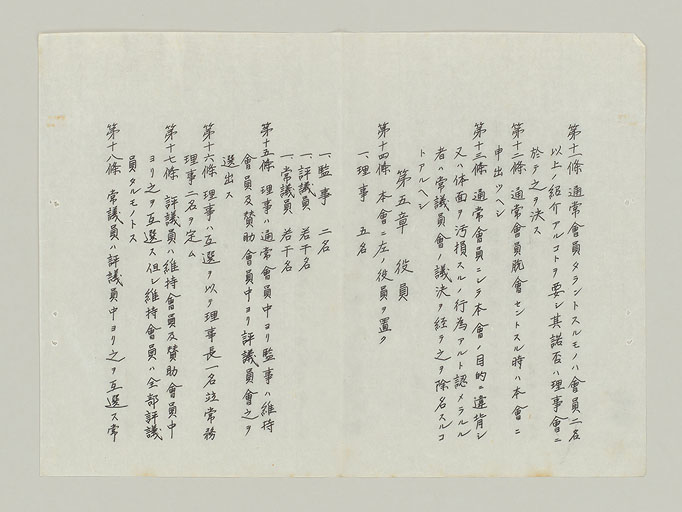 第十一條 通常會員タラントスルモノハ會員二名
以上ノ紹介アルコトヲ要シ其諾否ハ理事會ニ
於テ之ヲ決ス
第十二條 通常會員脱會セントスル時ハ本會ニ
申出ツヘシ
第十三條 通常會員ニシテ本會ノ目的ニ違背シ
又ハ体面ヲ汚損スルノ行為アルト認メラルル
者ハ常議員會ノ議決ヲ経テ之ヲ除名スルコ
トアルヘシ
第五章 役員
第十四條 本會ニ左ノ役員ヲ置ク
一、理事 五名
一、監事 二名
一、評議員 若干名
一、常議員 若干名
第十五條 理事ハ通常會員中ヨリ監事ハ維持
會員及賛助會員中ヨリ評議員會之ヲ
選出ス
第十六條 理事ハ互選ヲ以テ理事長一名並常務
理事二名ヲ定ム
第十七條 評議員ハ維持會員及賛助會員中
ヨリ之ヲ互選ス但シ維持會員ハ全部評議
員タルモノトス
第十八條 常議員ハ評議員中ヨリ之ヲ互選ス常